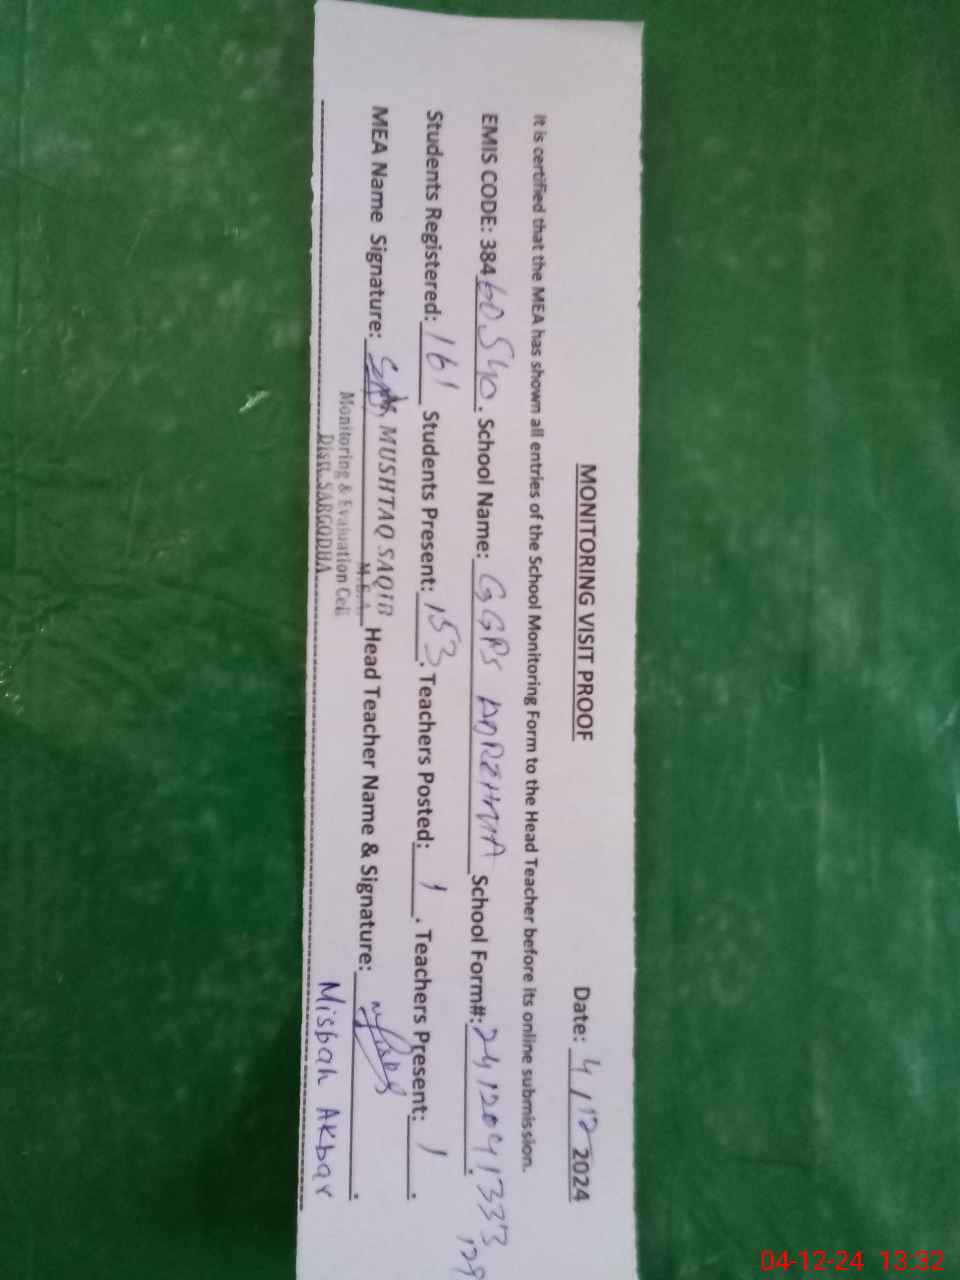 MONITORING VISIT PROOF
Date: 4/12 2024
It is certified that the MEA has shown all entries of the School Monitoring Form to the Head Teacher before its online submission.
EMIS CODE: 38460540. School Name: GGPS School Form#: 2412041333
129
Students Registered: 161 Students Present: 153. Teachers Posted: 1. Teachers Present: 1.
MEA Name Signature: MUSHTAQ SAQIB Head Teacher Name & Signature:
M.E.A.
Misbah Akbar
Monitoring & Evaluation Cell
Distt. SARGODHA
04-12-24 13:32